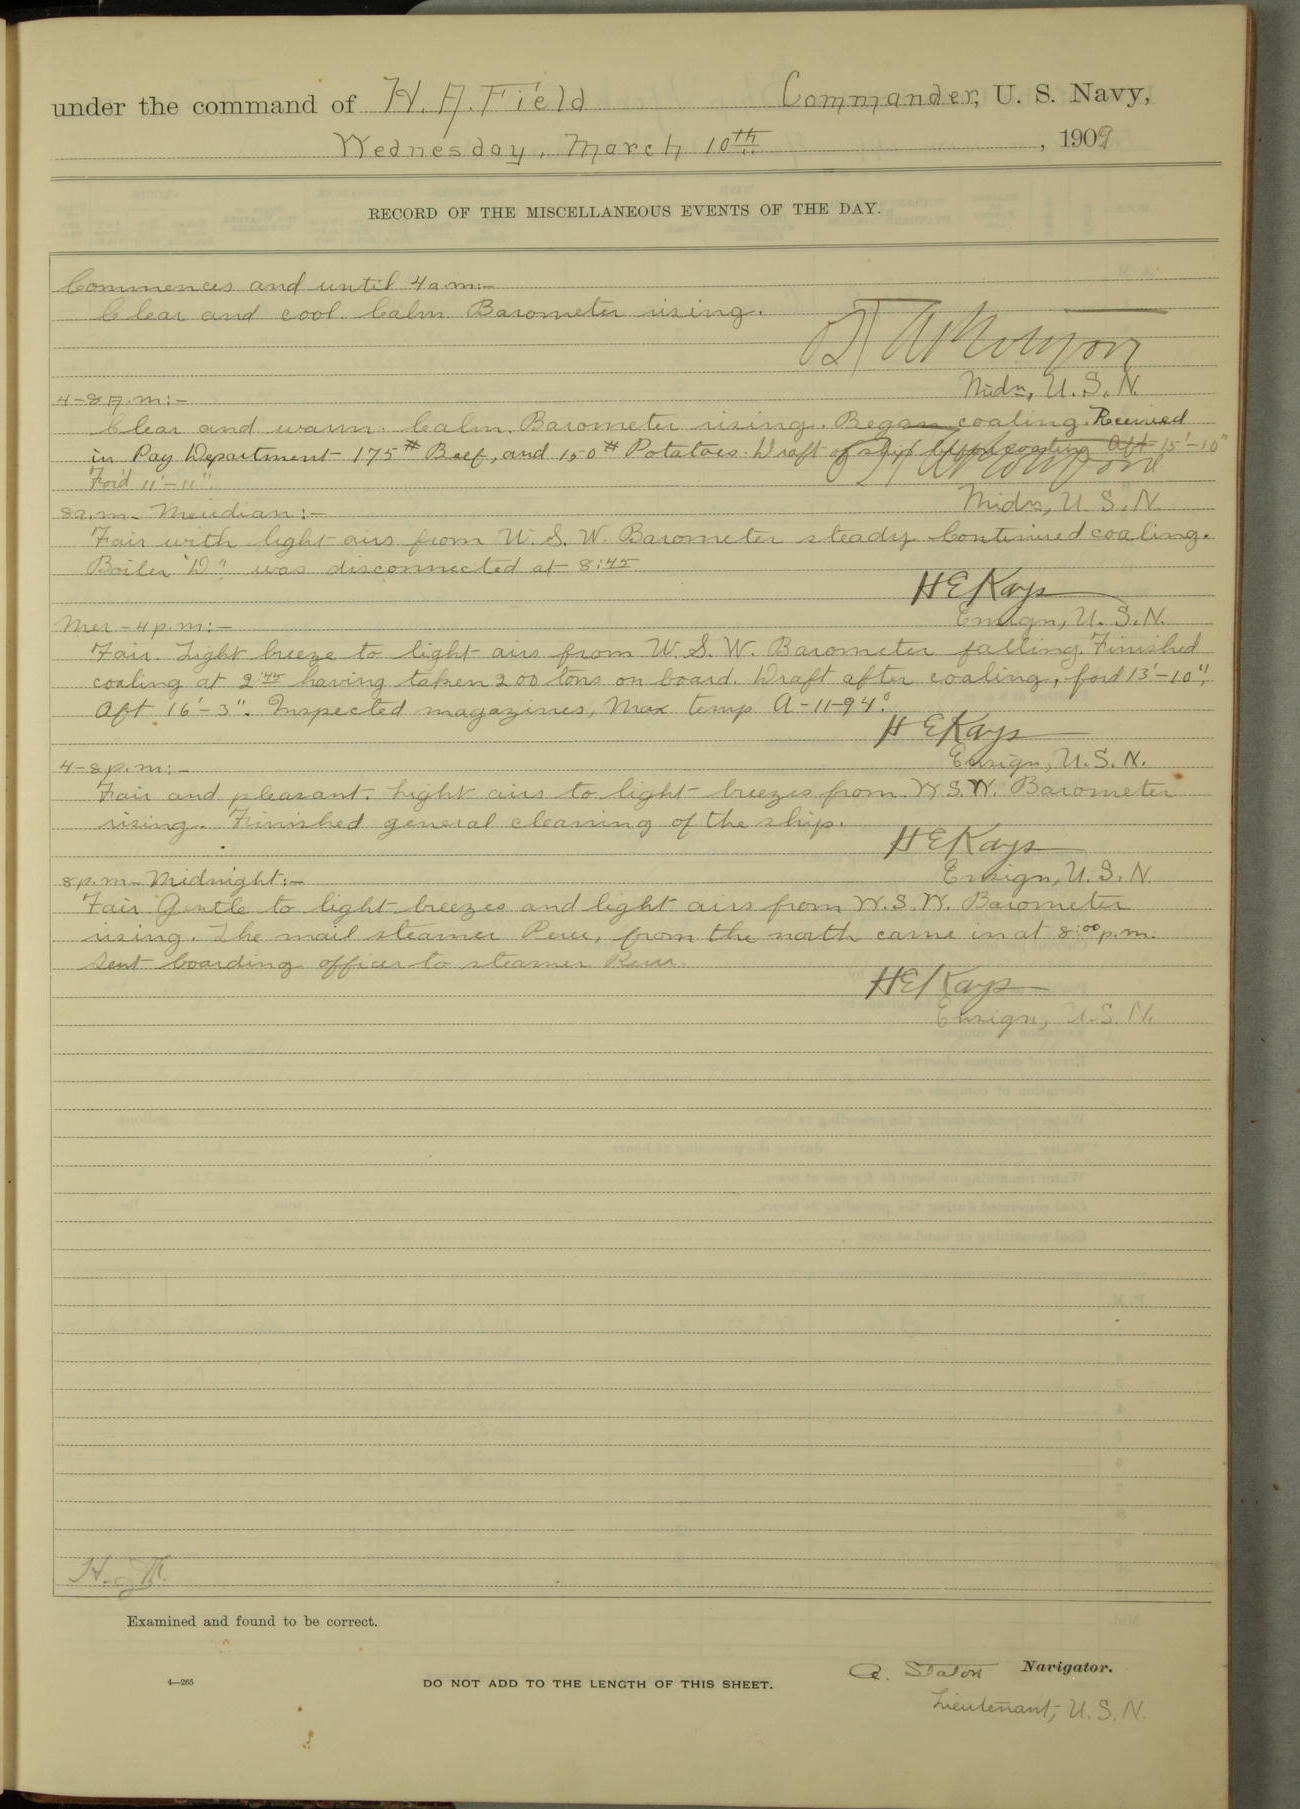 under the command of H. A. Field Commander, U. S. Navy,
Wednesday, March 10th, 1909
RECORD OF THE MISCELLANEOUS EVENTS OF THE DAY.
Commences and until 4 a.m:-
Clear and cool. Calm. Barometer rising.
Midn, U. S. N.
4-8 A.m:-
Clear and warm. Calm. Barometer rising. Began coaling. Received
in Pay Department 175# Beef, and 150# Potatoes. Draft of ship before coaling Aft 15'-10"
For'd 11'-11".
Midn, U. S. N.
8 a.m - Meridian:-
Fair with light airs from W. S. W. Barometer steady. Continued coaling.
Boiler "D" was disconnected at 8:45
H E Kays
Ensign, U. S. N.
Mer - 4 p.m:-
Fair. Light breeze to light airs from W. S. W. Barometer falling. Finished
coaling at 2:45 having taken 200 tons on board. Draft after coaling, for'd 13'-10",
Aft 16'-3". Inspected magazines, Max temp A-11-94°.
H E Kays
Ensign, U. S. N.
4-8 p.m:-
Fair and pleasant. Light airs to light breezes from W. S. W. Barometer
rising. Finished general cleaning of the ship.
H E Kays
Ensign, U. S. N.
8 p.m - Midnight:-
Fair Gentle to light breezes and light airs from W. S. W. Barometer
rising. The mail steamer Peru, from the north came in at 8:00 p.m.
Sent boarding officer to steamer Peru.
H E Kays
Ensign, U. S. N.
Examined and found to be correct.
A. Staton Navigator.
4—265 DO NOT ADD TO THE LENGTH OF THIS SHEET.
Lieutenant, U. S. N.